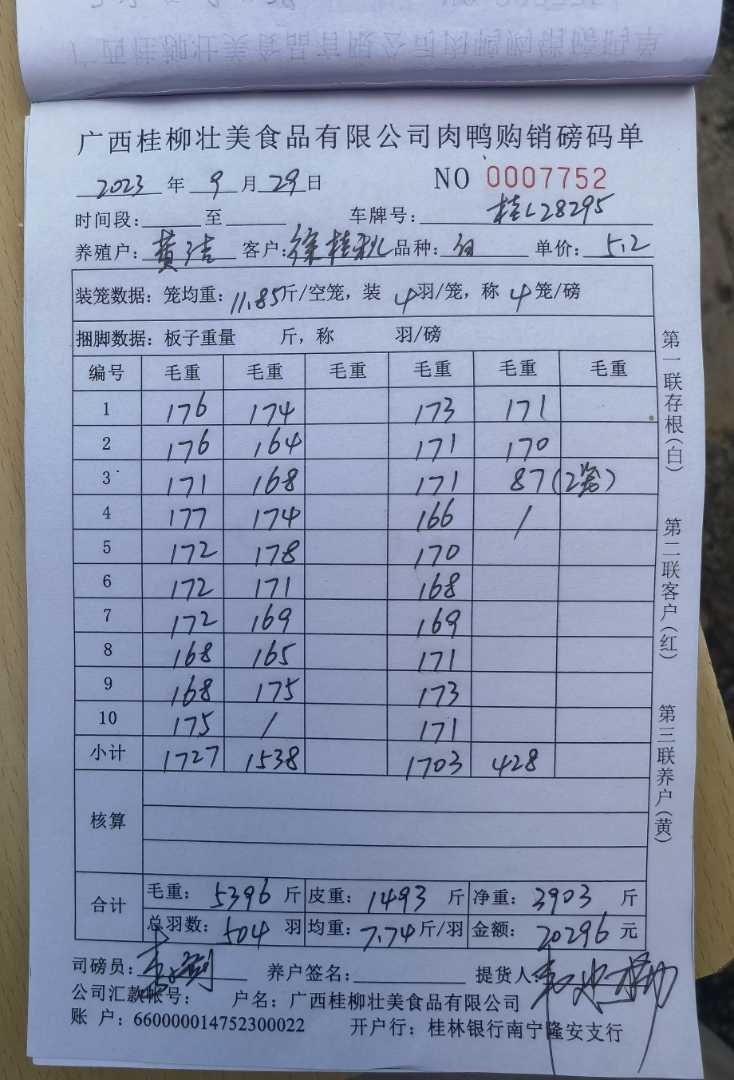 广西桂柳壮美食品有限公司肉鸭购销磅码单
2023 年 9 月 29 日 NO 0007752
时间段: 至 车牌号: 桂L28295
养殖户: 黄洁 客户: 徐桂秋 品种: 白 单价: 5.2
装笼数据: 笼均重: 11.85 斤/空笼, 装 4 羽/笼, 称 4 笼/磅
捆脚数据: 板子重量 斤, 称 羽/磅
编号 毛重 毛重 毛重 毛重 毛重 毛重
1 176 174 173 171
2 176 164 171 170
3 171 168 171 87(2笼)
4 177 174 166 /
5 172 178 170
6 172 171 168
7 172 169 169
8 168 165 171
9 168 175 173
10 175 / 171
小计 1727 1538 1703 428
核算
合计 毛重: 5396 斤 皮重: 1493 斤 净重: 3903 斤
总羽数: 504 羽 均重: 7.74 斤/羽 金额: 20296 元
司磅员: 养户签名: 提货人:
公司汇款帐号: 户名: 广西桂柳壮美食品有限公司
账 户: 660000014752300022 开户行: 桂林银行南宁隆安支行
第一联存根(白)
第二联客户(红)
第三联养户(黄)